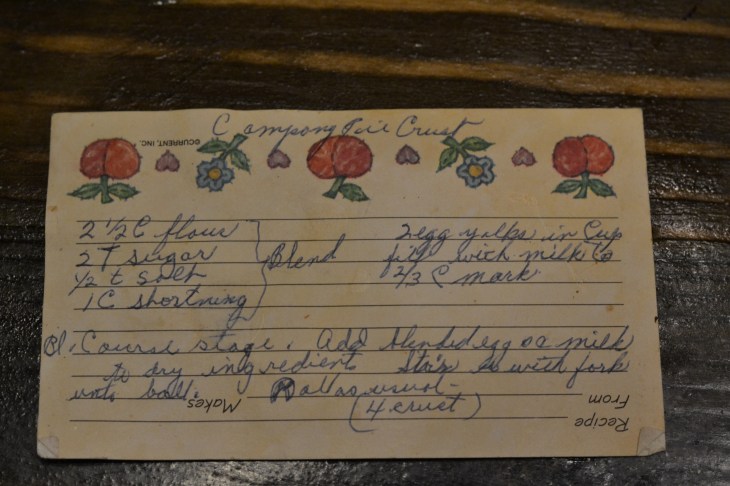 Campong Pie Crust
©CURRENT, INC.
2 1/2 C flour
2 T sugar
1/2 t salt
1 C shortning
Blend
2 egg yolks in Cup
fill with milk to
2/3 C mark
Bl. Course stage. Add blended egg & milk
to dry ingredients Stir with fork
unto ball. Roll as usual -
(4 crust)
Makes
Recipe
From